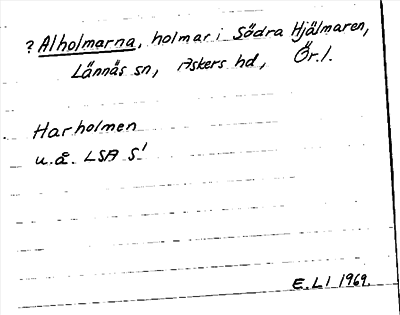 ? Alholmarna, holmar i Södra Hjälmaren,
Lännäs sn, Askers hd, Ör. l.
Harholmen
u.å. LSA S1
E.LI 1969.